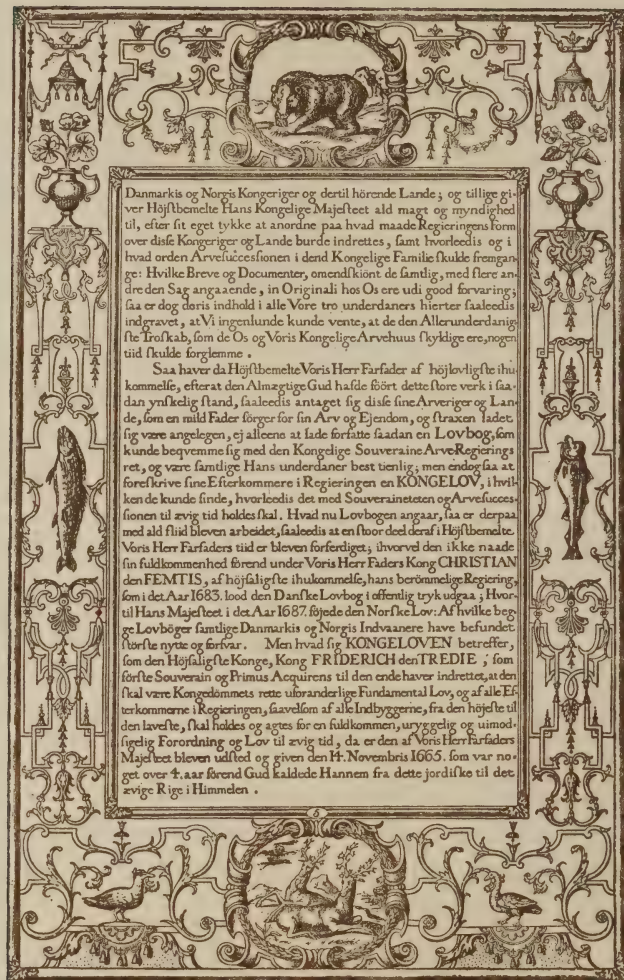 Danmarkis og Norgis Kongeriger og dertil hörende Lande; og tillige gi-
ver Höjstbemelte Hans Kongelige Majesteet ald magt og myndighed
til, efter sit eget tykke at anordne paa hvad maade Regieringens Form
over disse Kongeriger og Lande burde indrettes, samt hvorleedis og i
hvad orden Arvesuccessionen i dend Kongelige Familie skulde fremgan-
ge: Hvilke Breve og Documenter, omendskiönt de samtlig, med flere an-
dre den Sag angaaende, in Originali hos Os ere udi good forvaring;
saa er dog deris indhold i alle Vore tro underdaners hierter saaleedis
indgravet, at Vi ingenlunde kunde vente, at de den Allerunderdanig-
ste Troskab, som de Os og Voris Kongelige Arvehuus skyldige ere, nogen
tiid skulde forglemme.
Saa haver da Höjstbemelte Voris Herr Farfader af höjlovligste ihu-
kommelse, efterat den Almægtige Gud hafde föört dette store verk i saa-
dan ynskelig stand, saaleedis antaget sig disse sine Arveriger og Lan-
de, som en mild Fader sörger for sin Arv og Ejendom, og straxen ladet
sig være angelegen, ej alleene at lade forfatte saadan en Lovbog, som
kunde beqvemme sig med den Kongelige Souveraine Arve Regierings
ret, og være samtlige Hans underdaner best tienlig; men endog saa at
foreskrive sine Efterkommere i Regieringen en KONGELOV, i hvil-
ken de kunde finde, hvorleedis det med Souveraineteten og Arvesucces-
sionen til ævig tid holdes skal. Hvad nu Lovbogen angaar, saa er derpaa
med ald fliid bleven arbeidet, saaleedis at en stoor deel deraf i Höjstbemelte
Voris Herr Farfaders tiid er bleven forferdiget; ihvorvel den ikke naade
sin fuldkommenhed förend under Voris Herr Faders Kong CHRISTIAN
den FEMTIS, af höjsaligste ihukommelse, hans berömmelige Regiering,
som i det Aar 1683. lood den Danske Lovbog i offentlig tryk udgaa; Hvor-
til Hans Majesteet i det Aar 1687. föjede den Norske Lov: Af hvilke beg-
ge Lovböger samtlige Danmarkis og Norgis Indvaanere have befundet
störste nytte og forsvar. Men hvad sig KONGELOVEN betreffer,
som den Höjsaligste Konge, Kong FRIDERICH den TREDIE, som
förste Souverain og Primus Acquirens til den ende haver indrettet, at den
skal være Kongedömmets rette uforanderlige Fundamental Lov, og af alle Ef-
terkommerne i Regieringen, saavelsom af alle Indbyggerne, fra den höjeste til
den laveste, skal holdes og agtes for en fuldkommen, uryggelig og uimod-
sigelig Forordning og Lov til ævig tid, da er den af Voris Herr Farfaders
Majesteet bleven udstæd og given den 14. Novembris 1665. som var no-
get over 4. aar förend Gud kaldede Hannem fra dette jordiske til det
ævige Rige i Himmelen.
5